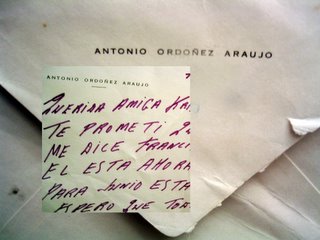 ANTONIO ORDOÑEZ ARAUJO
ANTONIO ORDOÑEZ ARAUJO
QUERIDA AMIGA
TE PROMETI
ME DICE FRANCI
EL ESTA AHORA
PARA JUNIO ESTA
ESPERO QUE